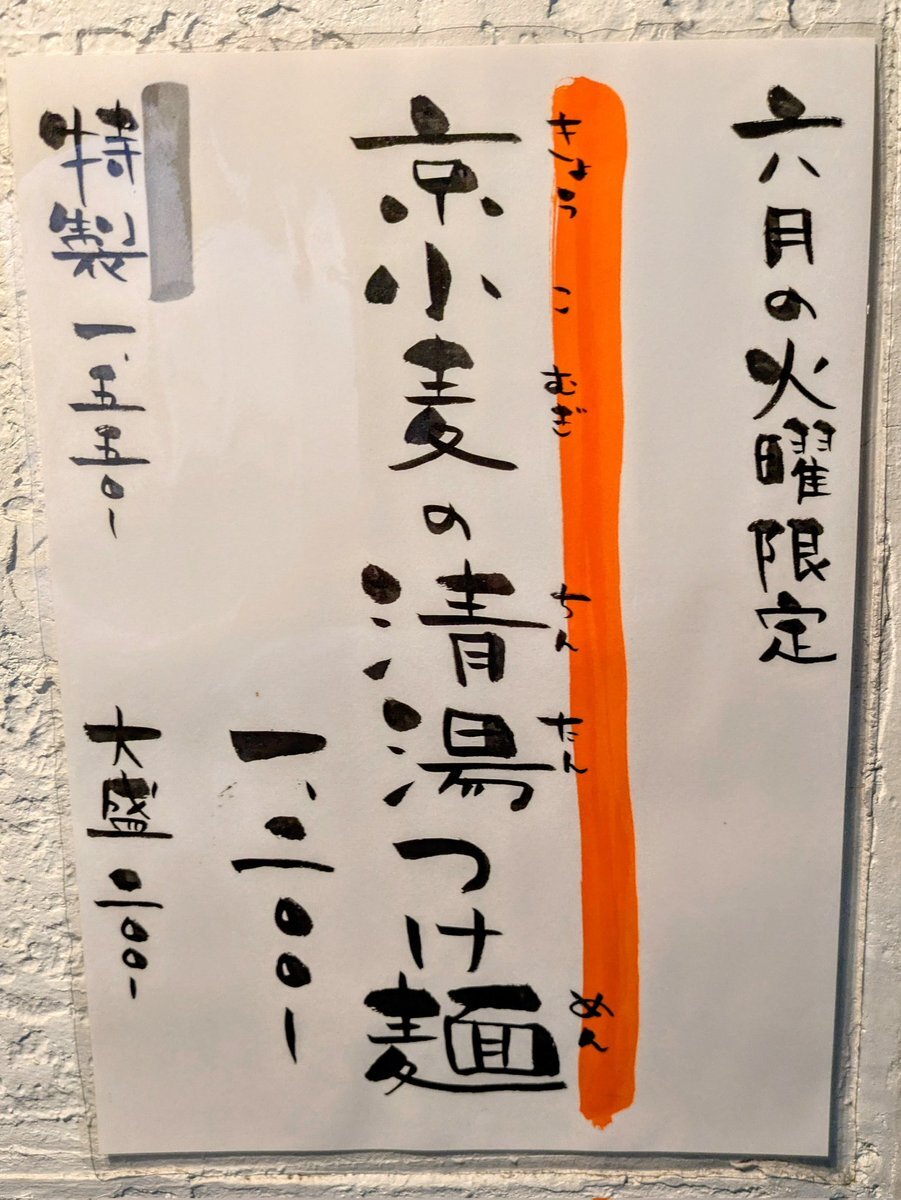 六月の火曜限定
きょう こ むぎ ちん たん めん
京小麦の清湯つけ麺
一、二〇〇-
特製 一、五五〇-
大盛 二〇〇-